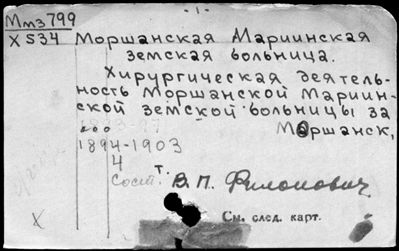 - 1 -
Ммз 799
X 534
Моршанская Мариинская
земская больница.
Хирургическая деятель-
ность Моршанской Мариин-
ской земской больницы за
...
Моршанск,
1894-1903
4 т.
Сост. В. П. Филопович
См. след. карт.
X